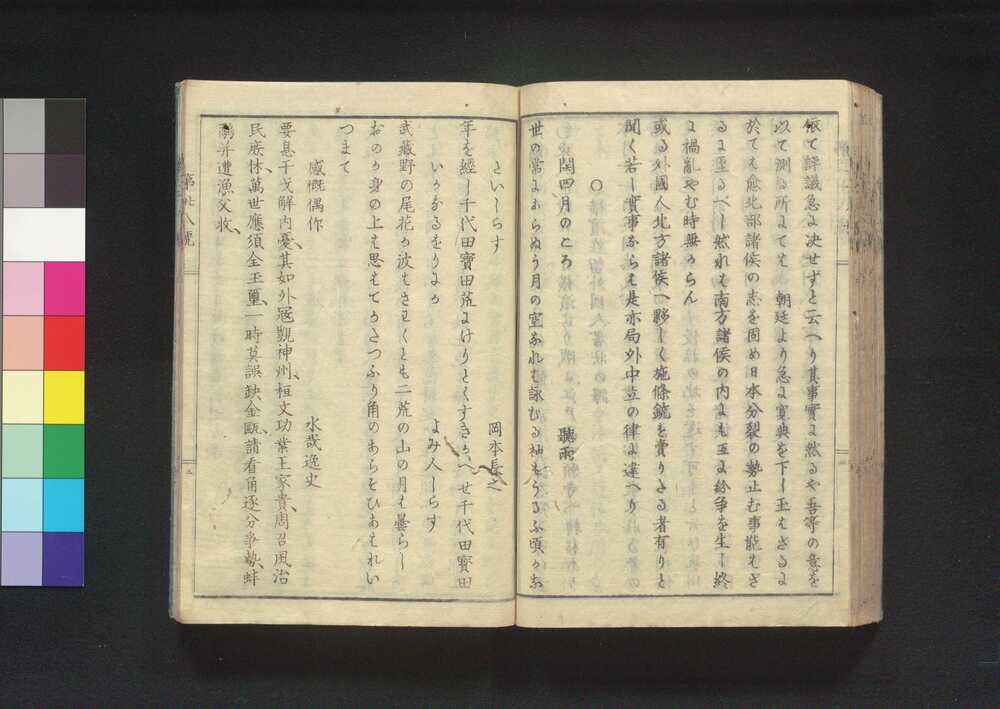 依て評議急に決せずと云へり其事實に然るや吾等の意を
以て測る所にても 朝廷より急に寛典を下し玉はざるに
於ても愈北部諸侯の志を固め日本分裂の勢止む事能はざ
るに至るべし然れは南方諸侯の内にも互に紛争を生し終
に禍亂やむ時無からん
或る外國人北方諸侯へ夥しく施條銃を賣りたる者有りと
聞く若し實事ならは是亦局外中立の律に違へり
○
閏四月のころ 聽雨
世の常にあらぬう月の空なれは詠むる袖もうるふ頃かな
といしらす 岡本長之
年を經し千代田寶田荒にけりとくすきかへせ千代田寶田
いかなるをりにか よみ人しらす
武藏野の尾花か波はさわくとも二荒の山の月は曇らし
おのか身の上は思はてかたつふり角のあらそひあはれい
つまて
感慨偶作 水哉逸史
要息干戈解内憂其如外冦覬神州桓文功業王家貴周召風治
民庶休萬世應須全玉璽一時莫誤缺金甌請看角逐分爭執蚌
鷸并遭漁父收
第廿八號